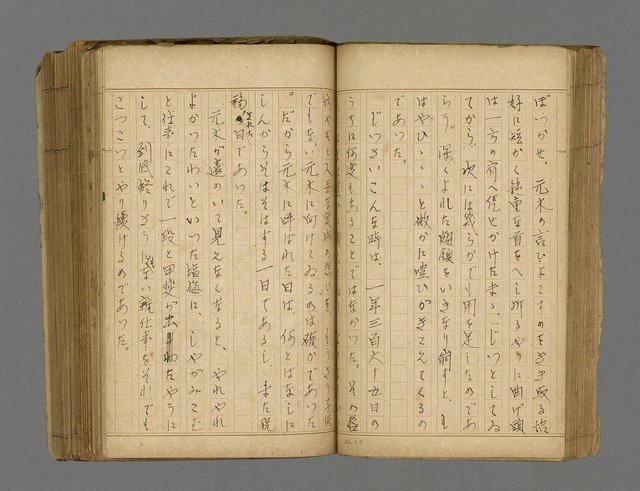 ぼつかせ、元木の言ひよこすのをきき取る恰
好に短かく純重な首をへし折るやうに曲げ頭
は一方の肩へ凭せかけたまゝ、じつとしてゐ
てから、次には幾らかでも用を足したのであ
らう、深くよれた皺顔をいきなり崩すと、も
はやひゝゝゝと微かに嘻ひがきこえてくるの
であつた。
じつさいこんな時は、一年三百六十五日の
うちに何遍もあることではなかつた。その
でもない元木に向けてゐるのは確かであつた
。だから元木に呼ばれた日は、何とはなしに
しんからそはそはする一日であるし、また祝
福された日であつた。
元木が遠のいて見えなくなると、やれやれ
よかつたわいといつた塩梅に、しやがみこむ
と仕事にこれで一段と甲斐が出わたやうに
して、到底終りさうもない雑仕事をそれでも
こつこつとやり続けるのであつた。